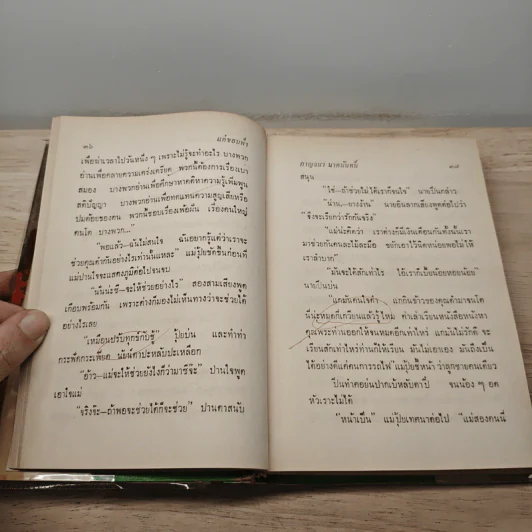 ๓๖
แค่ขอบฟ้า
เพื่อฆ่าเวลาไปวันหนึ่ง ๆ เพราะไม่รู้จะทำอะไร บางพวก
อ่านเพื่อคลายความเคร่งเครียด พวกนี้ต้องการเรื่องเบา
สมอง บางพวกอ่านเพื่อศึกษาหาคติหาความรู้เพิ่มพูน
สติปัญญา บางพวกอ่านเพื่อทดแทนความสูญเสียหรือ
ปมด้อยของตน พวกนี้ชอบเรื่องเพ้อฝัน เรื่องคนใหญ่
คนโต บางพวก...”
“พอแล้ว—ฉันไม่สนใจ ฉันอยากรู้แต่ว่าเราจะ
ช่วยคุณดำกันอย่างไรเท่านั้นแหละ” แม่ปุ้ยขัดขึ้นก่อนที่
แม่ปานใจจะแสดงภูมิต่อไปจนจบ
“นั่นน่ะซี—จะให้ช่วยอย่างไร” สองสามเสียงพูด
เกือบพร้อมกัน เพราะต่างก็มองไม่เห็นทางว่าจะช่วยได้
อย่างไรเลย
“เหมือนปรับทุกข์กับชู้” ปุ้ยบ่น และทำท่า
กระฟัดกระเฟียด นัยน์ตาปะหลับปะเหลือก
“อ้าว—แม่จะให้ช่วยยังไงก็ว่ามาซีจ๊ะ” ปานใจพูด
เอาใจแม่
“จริงจ้ะ—ถ้าพอจะช่วยได้ก็จะช่วย” ปานตาสนับ
กาญจนา นาคนันทิ์
๓๗
สนุน
“ใช่—ถ้าช่วยไม่ได้เราก็จนใจ” นายปื๊นกล่าว
“น่าน,—ยางงั้น” นายอินลากเสียงพูดต่อไปว่า
“ซิ่งจะเรียกว่ารักกันจริง”
“แม่น่ะคิดว่า เราค่าก็มีเงินเดือนกันทั้งนั้นเรา
มาช่วยกันคนละไม้ละมือ ขยักเอาไว้นิดหน่อยพอไม่ให้
เราลำบาก”
“มันจะได้สักเท่าไร ได้เราก็เบี้ยน้อยหอยน้อย”
นายปื๊นบ่น
“แกมันคนใจดำ แกกินข้าวของคุณดำมาจนโต
นี่น่ะหมดกี่เกวียนแล้วรู้ไหม ค่าเล่าเรียนหนังสือหนังหา
คุณพระท่านออกให้จนหมดอีกเท่าไหร่ แกมันไม่รักดี จะ
เรียนสักเท่าไหร่ท่านก็ให้เรียน มันไม่เอาเอง มันถึงเป็น
ได้อย่างดีแค่คนการรถไฟ” แม่ปุ้ยชี้หน้าว่าลูกชายคนเดียว
ปื๊นทำคอย่นปากเบ้หลับตาปี๋ จนน้อง ๆ อด
หัวเราะไม่ได้
“หน้าเป็น” แม่ปุ้ยเทศนาต่อไป “แม่สองคนนี่